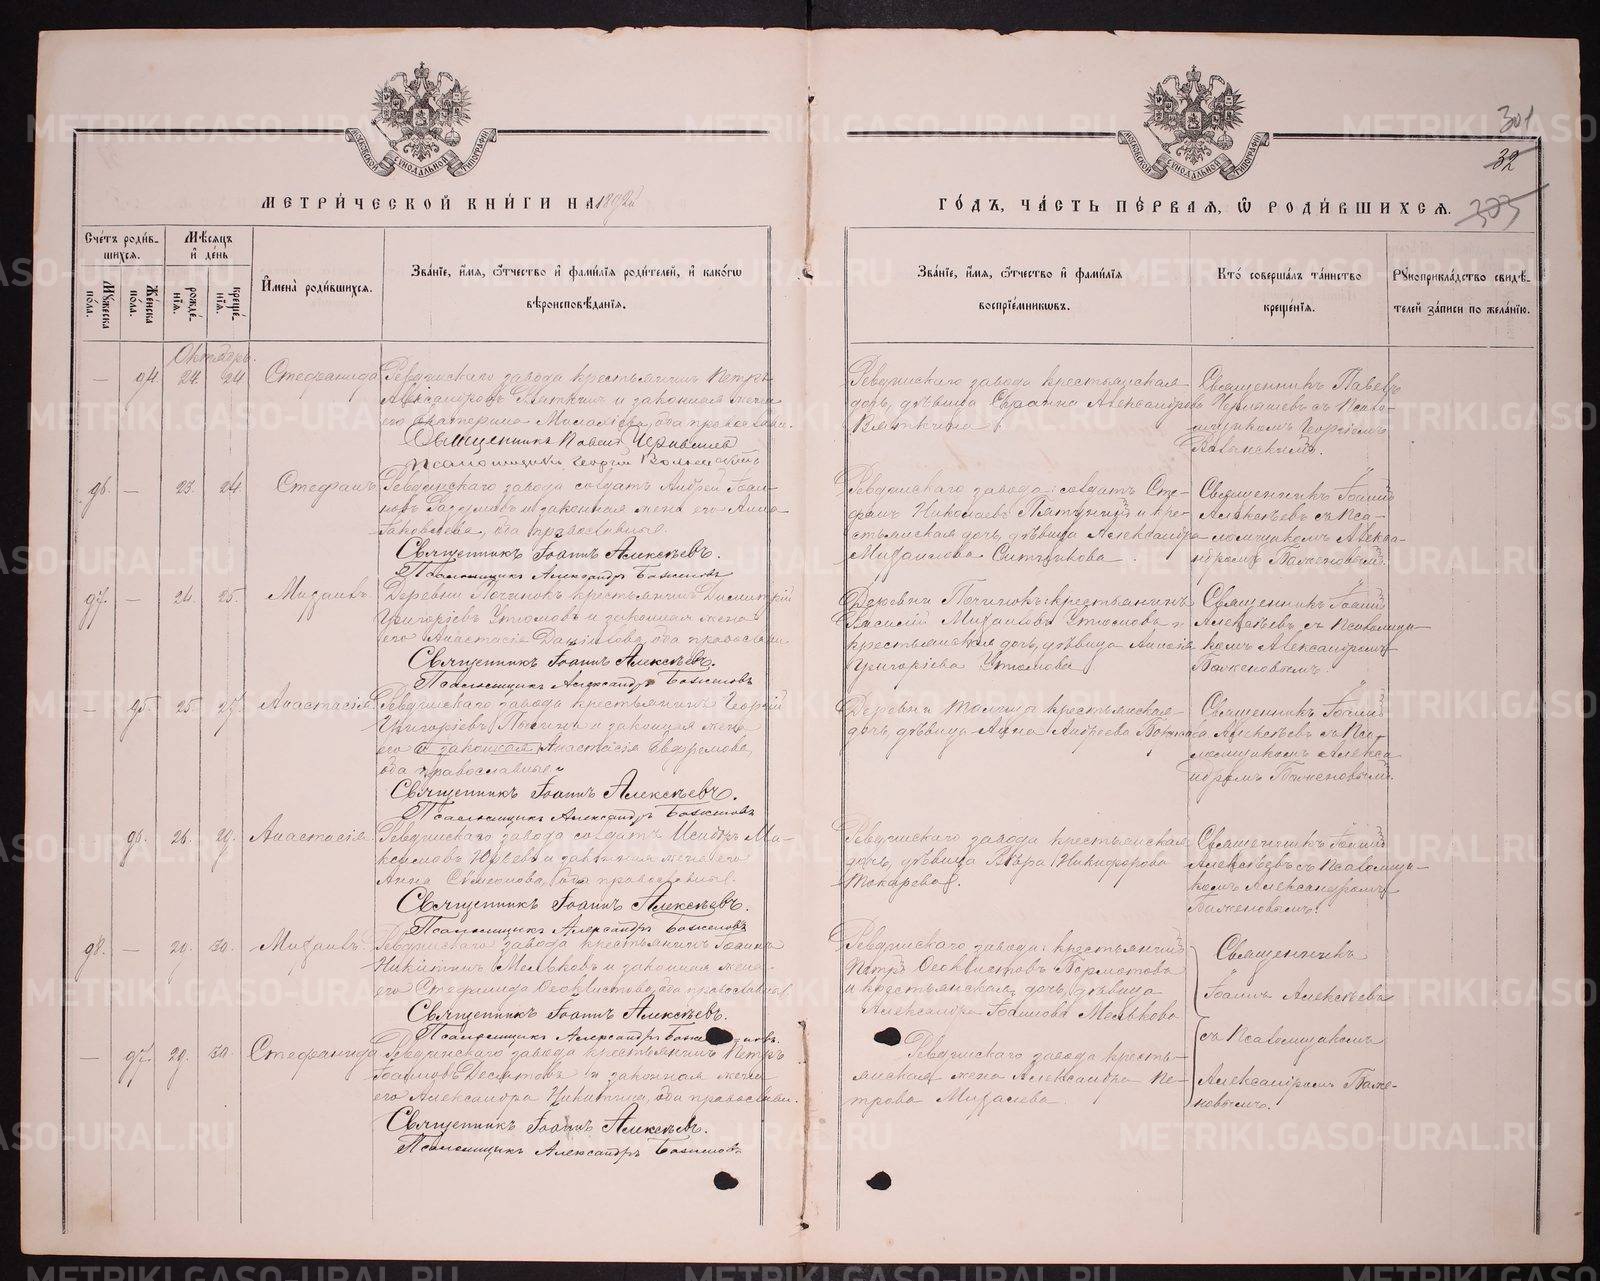 МОСКОВСКОЙ СѴНОДАЛЬНОЙ ТИПОГРАФІИ
МОСКОВСКОЙ СѴНОДАЛЬНОЙ ТИПОГРАФІИ
301
32
МЕТРИ́ЧЕСКОЙ КНИ́ГИ НА 1892
ГО́ДЪ, ЧА́СТЬ ПЕ́РВАЯ, Ѽ РОДИ́ВШИХСЯ.
305
Сче́тъ роди́в-
шихся.
Мѣ́сяцъ
и҆ де́нь
Мꙋ́жеска
по́ла.
Же́нска
по́ла.
рожде́-
нїя.
креще́-
нїя.
И҆мена̀ роди́вшихся.
Зва́нїе, и҆́мя, ѻ҆́тчество и҆ фами́лїя роди́телей, и҆ како́гѡ
вѣроисповѣ́данїя.
Зва́нїе, и҆́мя, ѻ҆́тчество и҆ фами́лїя
воспрїе́мникѡвъ.
Кто̀ соверша́лъ та́инство
креще́нїя.
Рꙋкоприкла́дство свидѣ́-
телей за́писи по жела́нїю.
Октябрь.
— 94. 24. 24 Стефанида Ревдинскаго завода крестьянинъ Петръ
Александровъ Вяткинъ и законная жена
его Екатерина Михайлова, оба православн.
Священникъ Павелъ Чернышевъ
псаломщикъ Георгій
Ревдинскаго завода крестьянская
дочь, дѣвица Александрова
Вяткина
Священникъ Павелъ
съ Псало-
мщикомъ Георгіемъ
96. — 23. 24. Стефанъ Ревдинскаго завода солдатъ Андрей Іоан-
новъ и законная жена его Анна
Яковлева, оба православные.
Священникъ Іоаннъ Алексѣевъ.
Псаломщикъ Александръ Баженовъ
Ревдинскаго завода: солдатъ Сте-
фанъ Николаевъ и кре-
стьянская дочь, дѣвица Александра
Михаилова Ситникова
Священникъ Іоаннъ
Алексѣевъ съ Пса-
ломщикомъ Алекса-
ндромъ Баженовымъ.
97. — 24. 25. Михаилъ Деревни Починокъ крестьянинъ Димитрій
Григоріевъ Утюмовъ и законная жена
его Анастасія Даніилова, оба православн.
Священникъ Іоаннъ Алексѣевъ.
Псаломщикъ Александръ Баженовъ
Деревни Починокъ: крестьянинъ
Василій Михаиловъ Утюмовъ и
крестьянская дочь, дѣвица
Григоріева Утюмова
Священникъ Іоаннъ
Алексѣевъ съ Псаломщи-
комъ Александромъ
Баженовымъ.
— 95. 25. 27. Анастасія Ревдинскаго завода крестьянинъ Георгій
Григоріевъ и законная жена
его и законная Анастасія Евфремова,
оба православные.
Священникъ Іоаннъ Алексѣевъ.
Псаломщикъ Александръ Баженовъ
Деревни крестьянская
дочь, дѣвица Анна Андреева
Священникъ Іоаннъ
Алексѣевъ съ Пса-
ломщикомъ Алекса-
ндромъ Баженовымъ.
— 96. 26. 29. Анастасія Ревдинскаго завода солдатъ Исидоръ Ма-
ксимовъ и законная жена его
Анна Симеонова, оба православные.
Священникъ Іоаннъ Алексѣевъ.
Псаломщикъ Александръ Баженовъ
Ревдинскаго завода крестьянская
дочь, дѣвица Вѣра Никифорова
Токарева.
Священникъ Іоаннъ
Алексѣевъ съ Псаломщи-
комъ Александромъ
Баженовымъ.
98. — 29. 30. Михаилъ Ревдинскаго завода крестьянинъ Іоаннъ
Никитинъ Мельковъ и законная жена
его Стефанида Ѳеоктистова, оба православные
Священникъ Іоаннъ Алексѣевъ.
Псаломщикъ Александръ Баженовъ.
Ревдинскаго завода: крестьянинъ
Петръ Ѳеоктистовъ Бормотовъ
и крестьянская дочь, дѣвица
Александра Іоаннова Мелькова
Священникъ
Іоаннъ Алексѣевъ
съ Псаломщикомъ
Александромъ Баже-
новымъ.
— 97. 29. 30. Стефанида Ревдинскаго завода крестьянинъ Петръ
Іоанновъ Десятовъ и законная жена
его Александра Никитина, оба православн.
Священникъ Іоаннъ Алексѣевъ.
Псаломщикъ Александръ Баженовъ
Ревдинскаго завода кресть-
янская жена Александра Пе-
трова Михалева.
METRIKI.GASO-URAL.RU